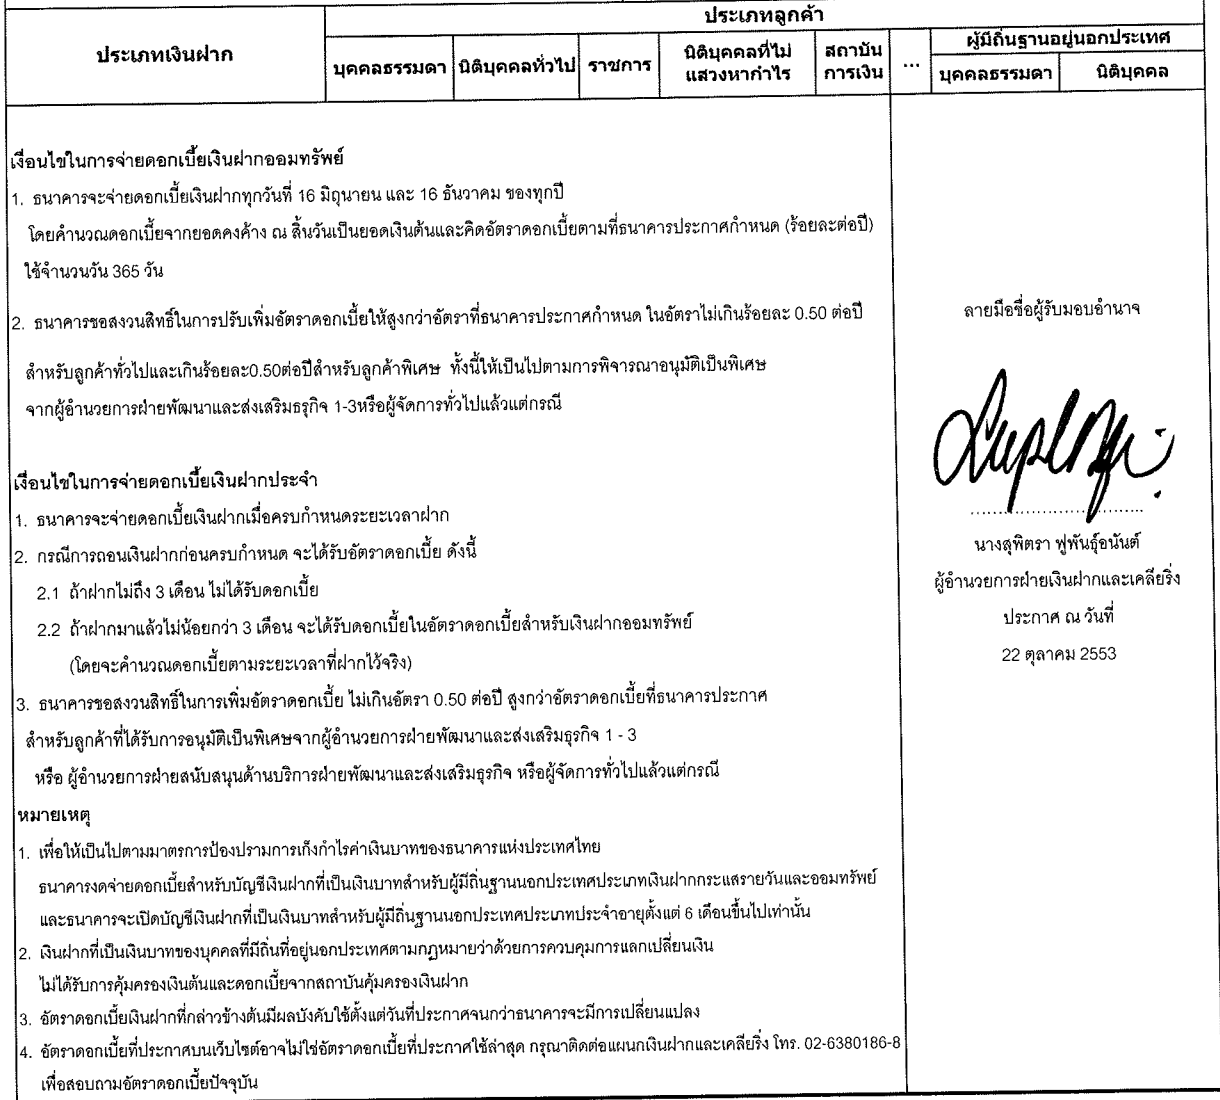 ประเภทลูกค้า
ประเภทเงินฝาก
บุคคลธรรมดา นิติบุคคลทั่วไป ราชการ นิติบุคคลที่ไม่ สถาบัน ... ผู้มีถิ่นฐานอยู่นอกประเทศ
แสวงหากำไร การเงิน บุคคลธรรมดา นิติบุคคล
เงื่อนไขในการจ่ายดอกเบี้ยเงินฝากออมทรัพย์
1. ธนาคารจะจ่ายดอกเบี้ยเงินฝากทุกวันที่ 16 มิถุนายน และ 16 ธันวาคม ของทุกปี
โดยคำนวณดอกเบี้ยจากยอดคงค้าง ณ สิ้นวันเป็นยอดเงินต้นและคิดอัตราดอกเบี้ยตามที่ธนาคารประกาศกำหนด (ร้อยละต่อปี)
ใช้จำนวนวัน 365 วัน
2. ธนาคารขอสงวนสิทธิ์ในการปรับเพิ่มอัตราดอกเบี้ยให้สูงกว่าอัตราที่ธนาคารประกาศกำหนด ในอัตราไม่เกินร้อยละ 0.50 ต่อปี
สำหรับลูกค้าทั่วไปและเกินร้อยละ0.50ต่อปีสำหรับลูกค้าพิเศษ ทั้งนี้ให้เป็นไปตามการพิจารณาอนุมัติเป็นพิเศษ
จากผู้อำนวยการฝ่ายพัฒนาและส่งเสริมธรุกิจ 1-3หรือผู้จัดการทั่วไปแล้วแต่กรณี
เงื่อนไขในการจ่ายดอกเบี้ยเงินฝากประจำ
1. ธนาคารจะจ่ายดอกเบี้ยเงินฝากเมื่อครบกำหนดระยะเวลาฝาก
2. กรณีการถอนเงินฝากก่อนครบกำหนด จะได้รับอัตราดอกเบี้ย ดังนี้
2.1 ถ้าฝากไม่ถึง 3 เดือน ไม่ได้รับดอกเบี้ย
2.2 ถ้าฝากมาแล้วไม่น้อยกว่า 3 เดือน จะได้รับดอกเบี้ยในอัตราดอกเบี้ยสำหรับเงินฝากออมทรัพย์
(โดยจะคำนวณดอกเบี้ยตามระยะเวลาที่ฝากไว้จริง)
3. ธนาคารขอสงวนสิทธิ์ในการเพิ่มอัตราดอกเบี้ย ไม่เกินอัตรา 0.50 ต่อปี สูงกว่าอัตราดอกเบี้ยที่ธนาคารประกาศ
สำหรับลูกค้าที่ได้รับการอนุมัติเป็นพิเศษจากผู้อำนวยการฝ่ายพัฒนาและส่งเสริมธุรกิจ 1 - 3
หรือ ผู้อำนวยการฝ่ายสนับสนุนด้านบริการฝ่ายพัฒนาและส่งเสริมธุรกิจ หรือผู้จัดการทั่วไปแล้วแต่กรณี
หมายเหตุ
1. เพื่อให้เป็นไปตามมาตรการป้องปรามการเก็งกำไรค่าเงินบาทของธนาคารแห่งประเทศไทย
ธนาคารงดจ่ายดอกเบี้ยสำหรับบัญชีเงินฝากที่เป็นเงินบาทสำหรับผู้มีถิ่นฐานนอกประเทศประเภทเงินฝากกระแสรายวันและออมทรัพย์
และธนาคารจะเปิดบัญชีเงินฝากที่เป็นเงินบาทสำหรับผู้มีถิ่นฐานนอกประเทศประเภทประจำอายุตั้งแต่ 6 เดือนขึ้นไปเท่านั้น
2. เงินฝากที่เป็นเงินบาทของบุคคลที่มีถิ่นที่อยู่นอกประเทศตามกฎหมายว่าด้วยการควบคุมการแลกเปลี่ยนเงิน
ไม่ได้รับการคุ้มครองเงินต้นและดอกเบี้ยจากสถาบันคุ้มครองเงินฝาก
3. อัตราดอกเบี้ยเงินฝากที่กล่าวข้างต้นมีผลบังคับใช้ตั้งแต่วันที่ประกาศจนกว่าธนาคารจะมีการเปลี่ยนแปลง
4. อัตราดอกเบี้ยที่ประกาศบนเว็บไซต์อาจไม่ใช่อัตราดอกเบี้ยที่ประกาศใช้ล่าสุด กรุณาติดต่อแผนกเงินฝากและเคลียริ่ง โทร. 02-6380186-8
เพื่อสอบถามอัตราดอกเบี้ยปัจจุบัน
ลายมือชื่อผู้รับมอบอำนาจ
นางสุพิตรา ฟูพันธุ์อนันต์
ผู้อำนวยการฝ่ายเงินฝากและเคลียริ่ง
ประกาศ ณ วันที่
22 ตุลาคม 2553